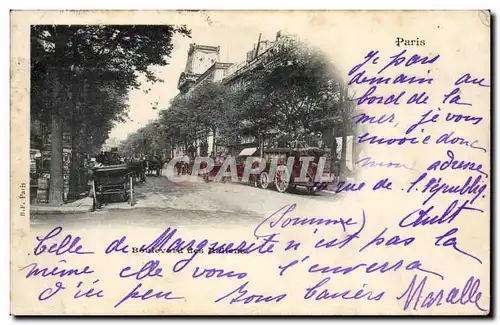 Paris
Je pars
demain au
bord de la
mer, je vous
envoie donc
mon adresse
rue de l'République
Ault
(Somme)
Belle de Marguerite n'est pas la
même elle vous l'enverra
d'ici peu Bons baisers Marcelle
Boulevard des Italiens
B.F. Paris
CPARAMA